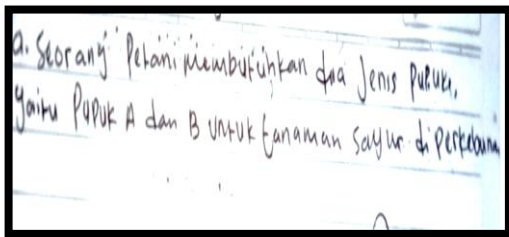 a. Seorang Petani Membutuhkan dua Jenis Pupuk,
yaitu Pupuk A dan B Untuk tanaman Sayur di perkebuna